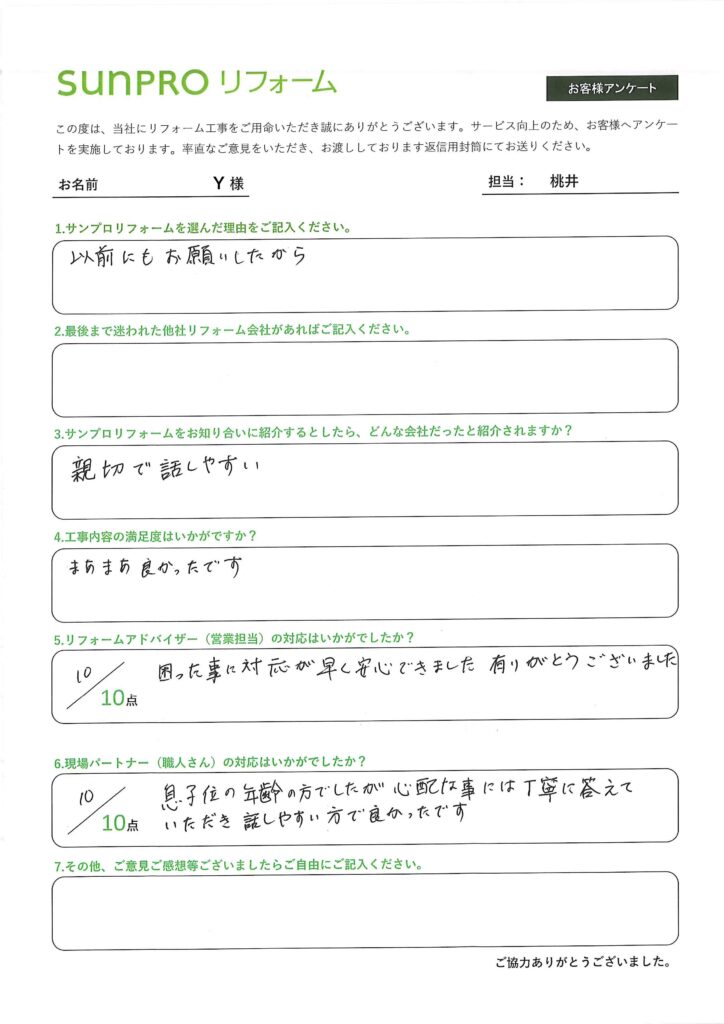 SUNPRO リフォーム
お客様アンケート
この度は、当社にリフォーム工事をご用命いただき誠にありがとうございます。サービス向上のため、お客様へアンケー
トを実施しております。率直なご意見をいただき、お渡ししております返信用封筒にてお送りください。
お名前 Y 様
担当： 桃井
1.サンプロリフォームを選んだ理由をご記入ください。
以前にもお願いしたから
2.最後まで迷われた他社リフォーム会社があればご記入ください。
3.サンプロリフォームをお知り合いに紹介するとしたら、どんな会社だったと紹介されますか？
親切で話しやすい
4.工事内容の満足度はいかがですか？
まあまあ良かったです
5.リフォームアドバイザー（営業担当）の対応はいかがでしたか？
10/10点
困った事に対応が早く安心できました 有りがとうございました
6.現場パートナー（職人さん）の対応はいかがでしたか？
10/10点
息子位の年齢の方でしたが心配な事には丁寧に答えて
いただき話しやすい方で良かったです
7.その他、ご意見ご感想等ございましたらご自由にご記入ください。
ご協力ありがとうございました。